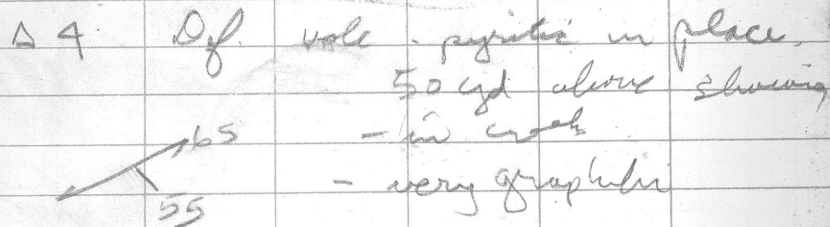 Δ 4 Df. volc. pyritic in place.
50 yd above showing
65 - in creek
- very graphitic
55